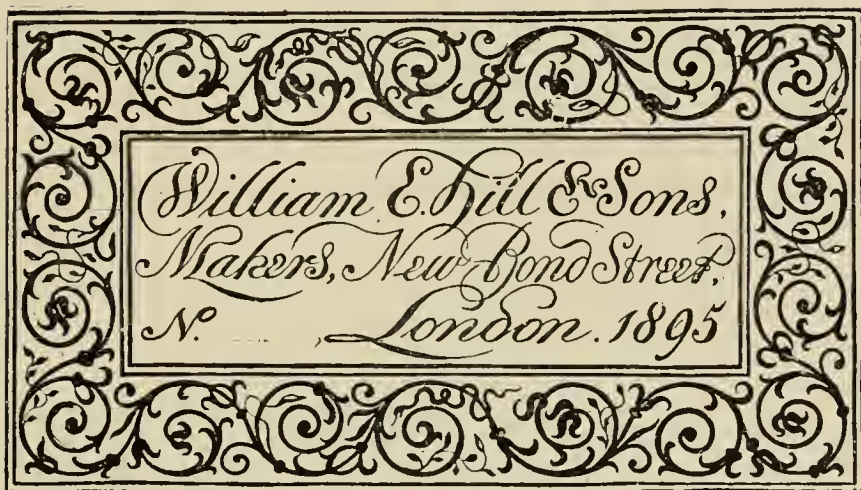 William E. Hill & Sons,
Makers, New Bond Street,
No. London. 1895